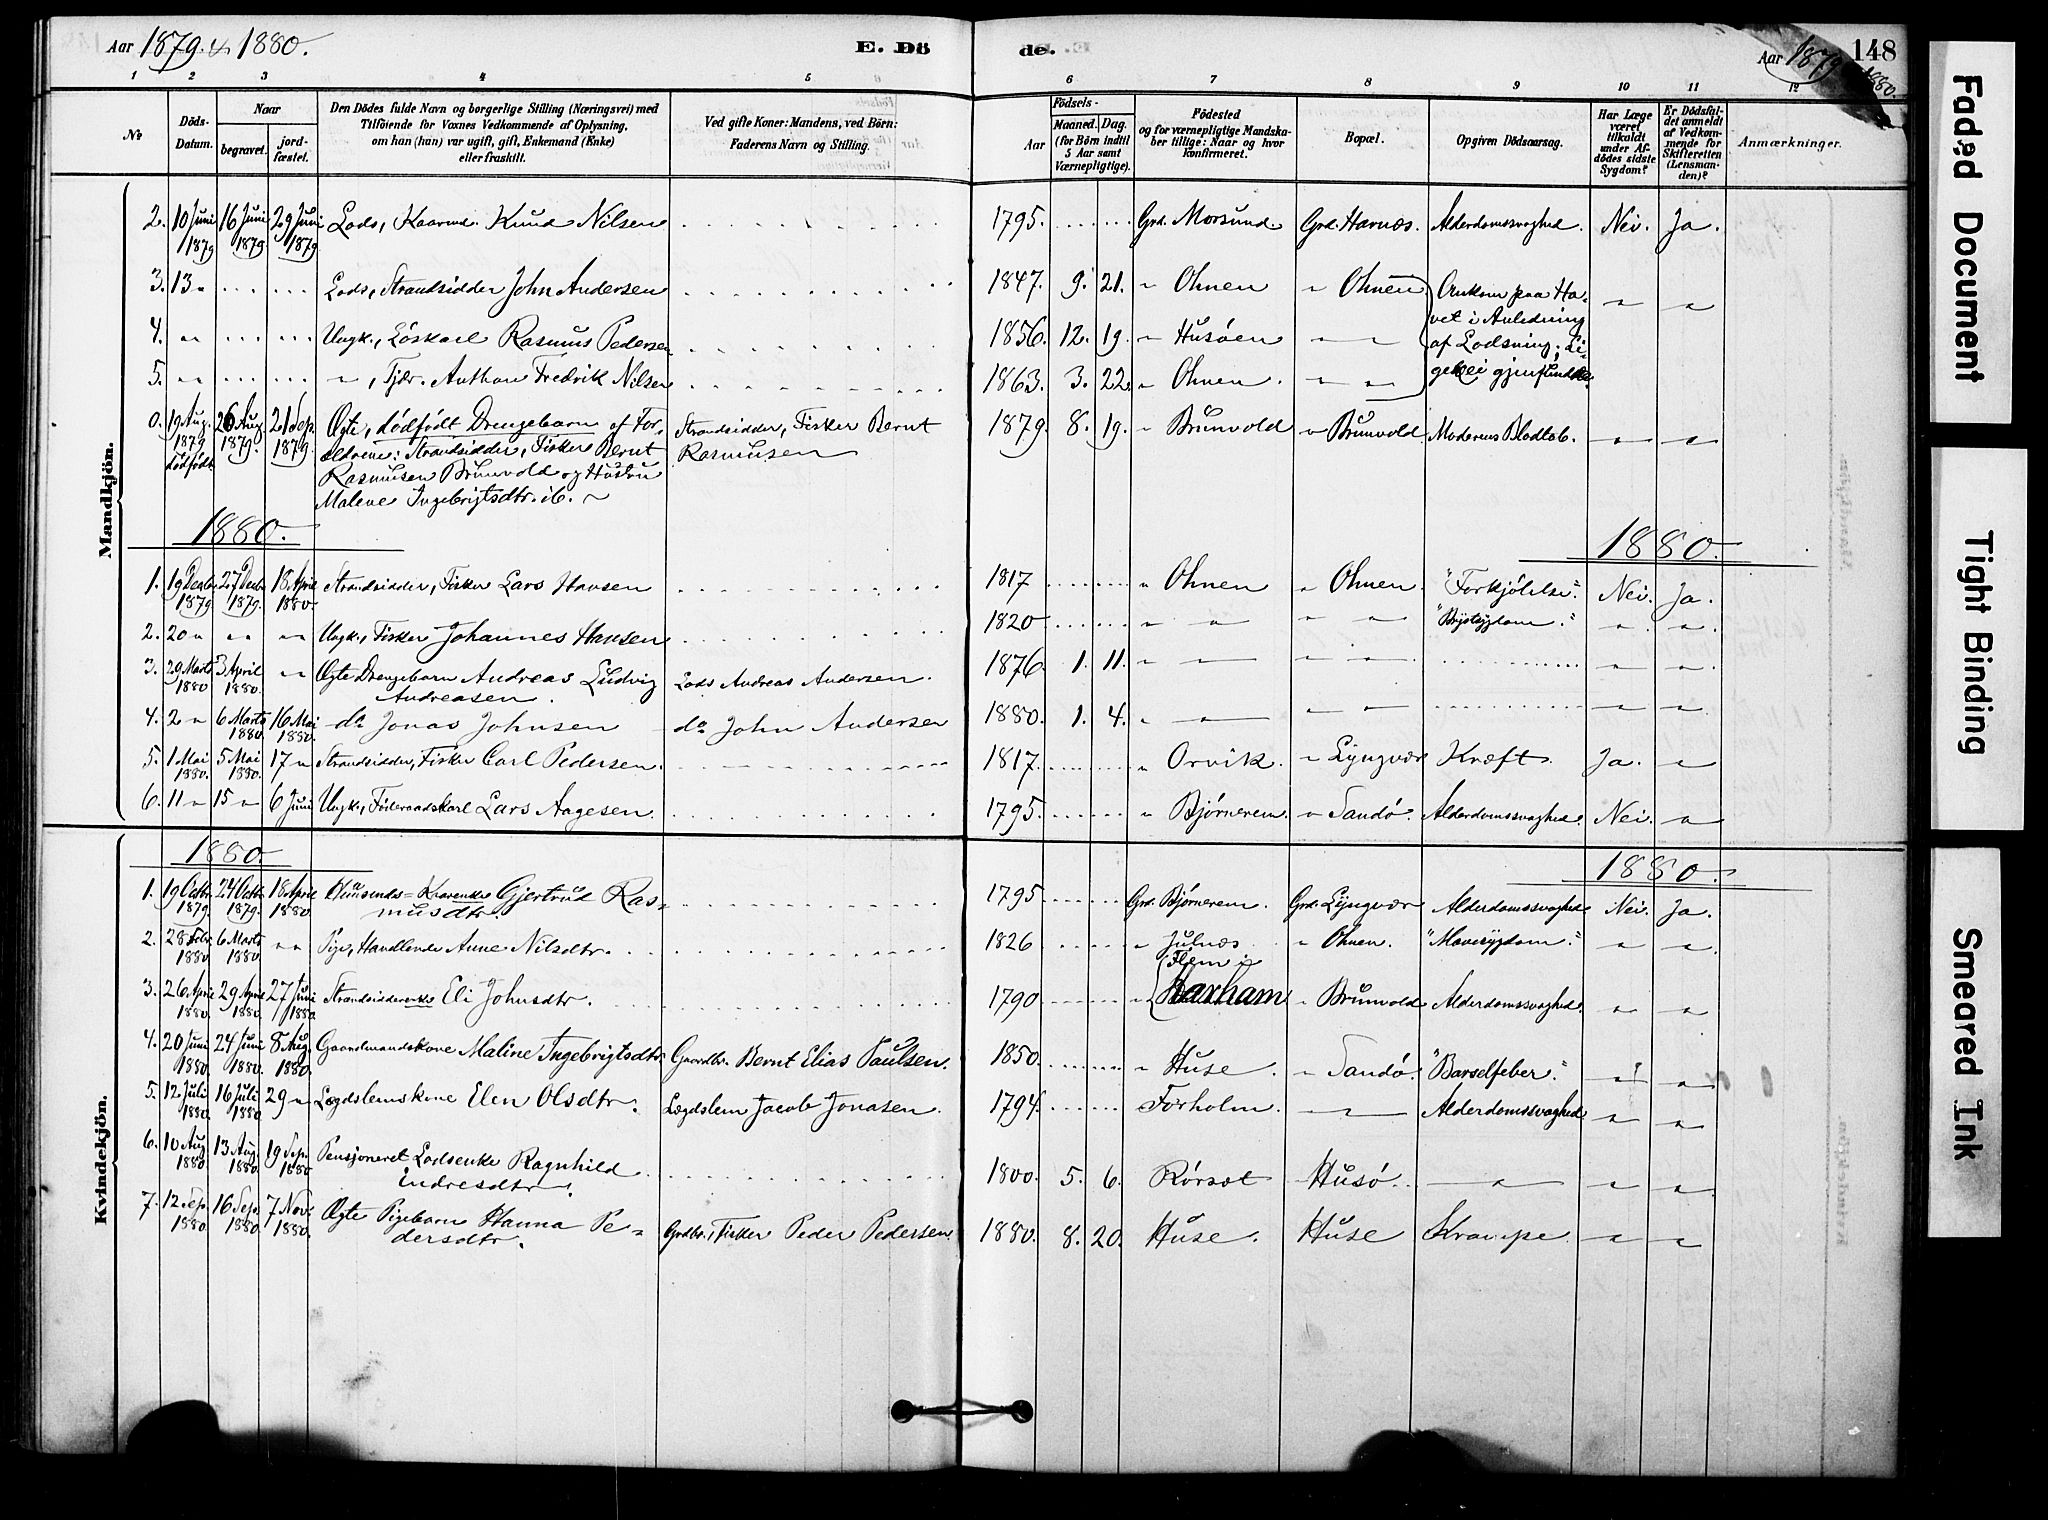 Aar 1879 & 1880.
E. Dö
de.
Aar 1879
148
1880.
1 2 3 4 5 6 7 8 9 10 11 12
No
Döds-Datum.
Naar
begravet.
jord-fæstet.
Den Dödes fulde Navn og borgerlige Stilling (Næringsvei) med
Tilföiende for Voxnes Vedkommende af Oplysning,
om han (hun) var ugift, gift, Enkemand (Enke)
eller fraskilt.
Ved gifte Koner: Mandens, ved Börn:
Faderens Navn og Stilling.
Födsels-
Aar
Maaned. Dag.
(for Börn indtil
5 Aar samt
Værnepligtige).
Födested
og for værnepligtige Mandska-
ber tillige: Naar og hvor
konfirmeret.
Bopæl.
Opgiven Dödsaarsag.
Har Læge
været
tilkaldt
under Af-
dödes sidste
Sygdom?
Er Dödsfal-
det anmeldt
af Vedkom-
mende for
Skifteretten
(Lensman-
den)?
Anmærkninger.
Mandkjön.
2. 10 Juni 1879 16 Juni 1879 29 Juni 1879 Lods, Kaarmd. Knud Nilsen 1795. Grd. Morsund Grd. Harnæs. Alderdomssvaghed. Nei. Ja.
3. 13 " Lods, Strandsidder John Andersen 1847. 9. 21. " Ohnen " Ohnen Omkom paa Ha-
vet i Anledning
af Lodsning; Li-
gene ei gjenfundne. " "
4. " " Ungk., Löskarl Rasmus Pedersen 1856. 12. 19. " Husöen " "
5. " " ", Tjdr. Anthon Fredrik Nilsen 1863. 3. 22. " Ohnen. " "
0. 19 Aug. 1879 Dödfödt 26 Aug 1879. 21 Sep. 1879. Ægte, dödfödt Drengebarn af For-
ældrene: Strandsidder, Fisker Bernt
Rasmusen Brunvold og Hustru
Malene Ingebrigtsdtr. ib. ~
Strandsidder, Fisker Bernt
Rasmusen
1879. 8. 19. " Brunvold " Brunvold Moderens Blodtab. " "
1880.
1880.
1. 19 Decbr 1879 27 Decbr 1879. 18 April 1880. Strandsidder, Fisker Lars Hansen 1817 " Ohnen " Ohnen "Forkjölelse". Nei. Ja.
2. 20 " " " " " Ungk., Fisker Johannes Hansen 1820 " " " " "Brystsygdom". " "
3. 29 Marts 1880 3 April 1880. " " Ægte Drengebarn Andreas Ludvig
Andreasen.
Lods Andreas Andersen.
1876. 1. 11. " " " " " "
4. 2 " 6 Marts 1880. 16 Mai 1880. do Jonas Johnsen do John Andersen 1880. 1. 4. " " " " " "
5. 1 Mai 1880. 5 Mai 1880. 17 " Strandsidder, Fisker Carl Pedersen. 1817. " Orvik. " Lyngvær Kræft. Ja. "
6. 11 " 15 " 6 Juni Ungk., Föderaadskarl Lars Aagesen. 1795. " Björnerem. " Sandö. Alderdomssvaghed. Nei. "
Kvindekjön.
1880.
1880.
1. 19 Octbr. 1879. 24 Octbr. 1879. 18 April 1880. Gjertrud Ras-
musdtr.
1795. Grd. Björnerem. Grd. Lyngvær Alderdomssvaghed Nei. Ja.
2. 28 Febr. 1880. 6 Marts 1880. " " Pige, Handlende Anne Nilsdtr. 1826 " Julnæs. " Ohnen. "Mavesygdom." " "
3. 26 April 1880. 29 April 1880. 27 Juni 1880. Strandsidderenke Eli Johnsdtr. 1790 " Flem i
Harham " Brunvold Alderdomssvaghed. " "
4. 20 Juni 1880. 24 Juni 1880. 8 Aug. 1880. Gaardmandskone Maline Ingebrigtsdtr. Gaardbr. Bernt Elias Paulsen. 1850. " Huse. " Sandö. "Barselfeber." " "
5. 12 Juli 1880. 16 Juli 1880 29 " Lægdslemskone Elen Olsdtr. Lægdslem Jacob Jonasen. 1794. Forholm. " Alderdomssvaghed " "
6. 10 Aug 1880. 13 Aug. 1880. 19 Sep. 1880 Pensjoneret Lodsenke Ragnhild
Endresdtr.
1800. 5. 6. Rörsæt Husö. " " "
7. 12 Sep. 1880. 16 Sep. 1880 7 Nov. 1880. Ægte Pigebarn Hanna Pe-
dersdtr.
Grdbr., Fisker Peder Pedersen.
1880. 8. 20. Huse. Huse Krampe. " "
Faded Document
Tight Binding
Smeared Ink